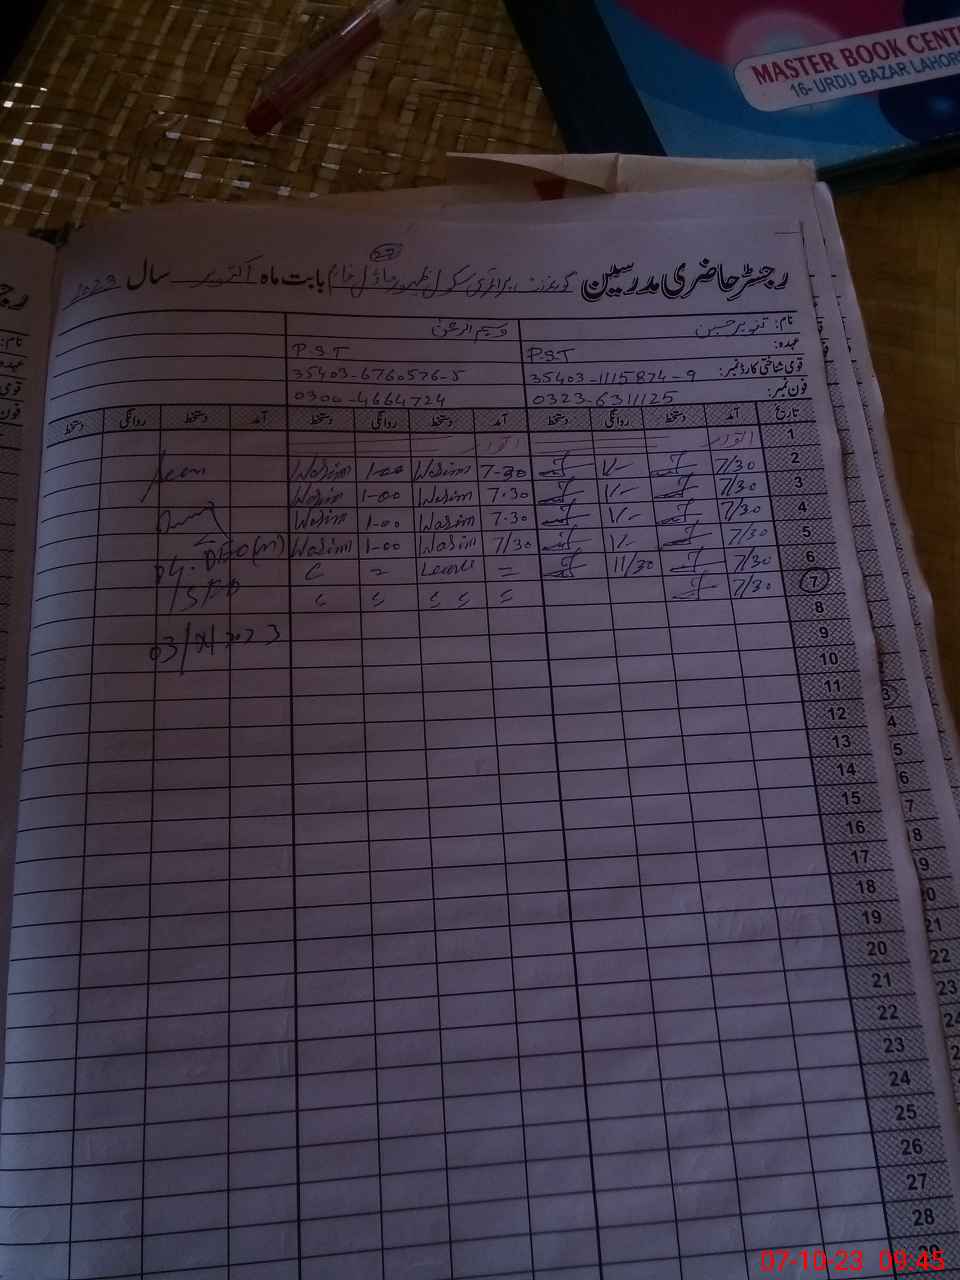 MASTER BOOK CENT
16- URDU BAZAR LAHOR
22
رجسٹر حاضری مدرسین گورنمنٹ پرائمری سکول ظہور بابت ماہ اکتوبر سال 2023
نام: تنویر حسین وسیم الرحمٰن
عہدہ: P.S.T P.S.T
قومی شناختی کارڈ نمبر: 35403-1115874-9 35403-6760576-5
فون نمبر: 0323-6311125 0300-4664724
تاریخ آمد دستخط روانگی دستخط آمد دستخط روانگی دستخط آمد دستخط روانگی دستخط
1 اتوار اتوار
2 7/30 1/- 7-30 Wasim 1-00 Wasim
3 7/30 1/- 7.30 Wasim 1-00 Wasim
4 7/30 1/- 7.30 Wasim 1-00 Wasim
5 7/30 1/- 7/30 Wasim 1-00 Wasim
6 7/30 11/30 = Leave =
7 7/30
Dy. DEO(M)
03/X/2023
8
9
10
11
12
13
14
15
16
17
18
19
20
21
22
23
24
25
26
27
28
07-10-23 09:45